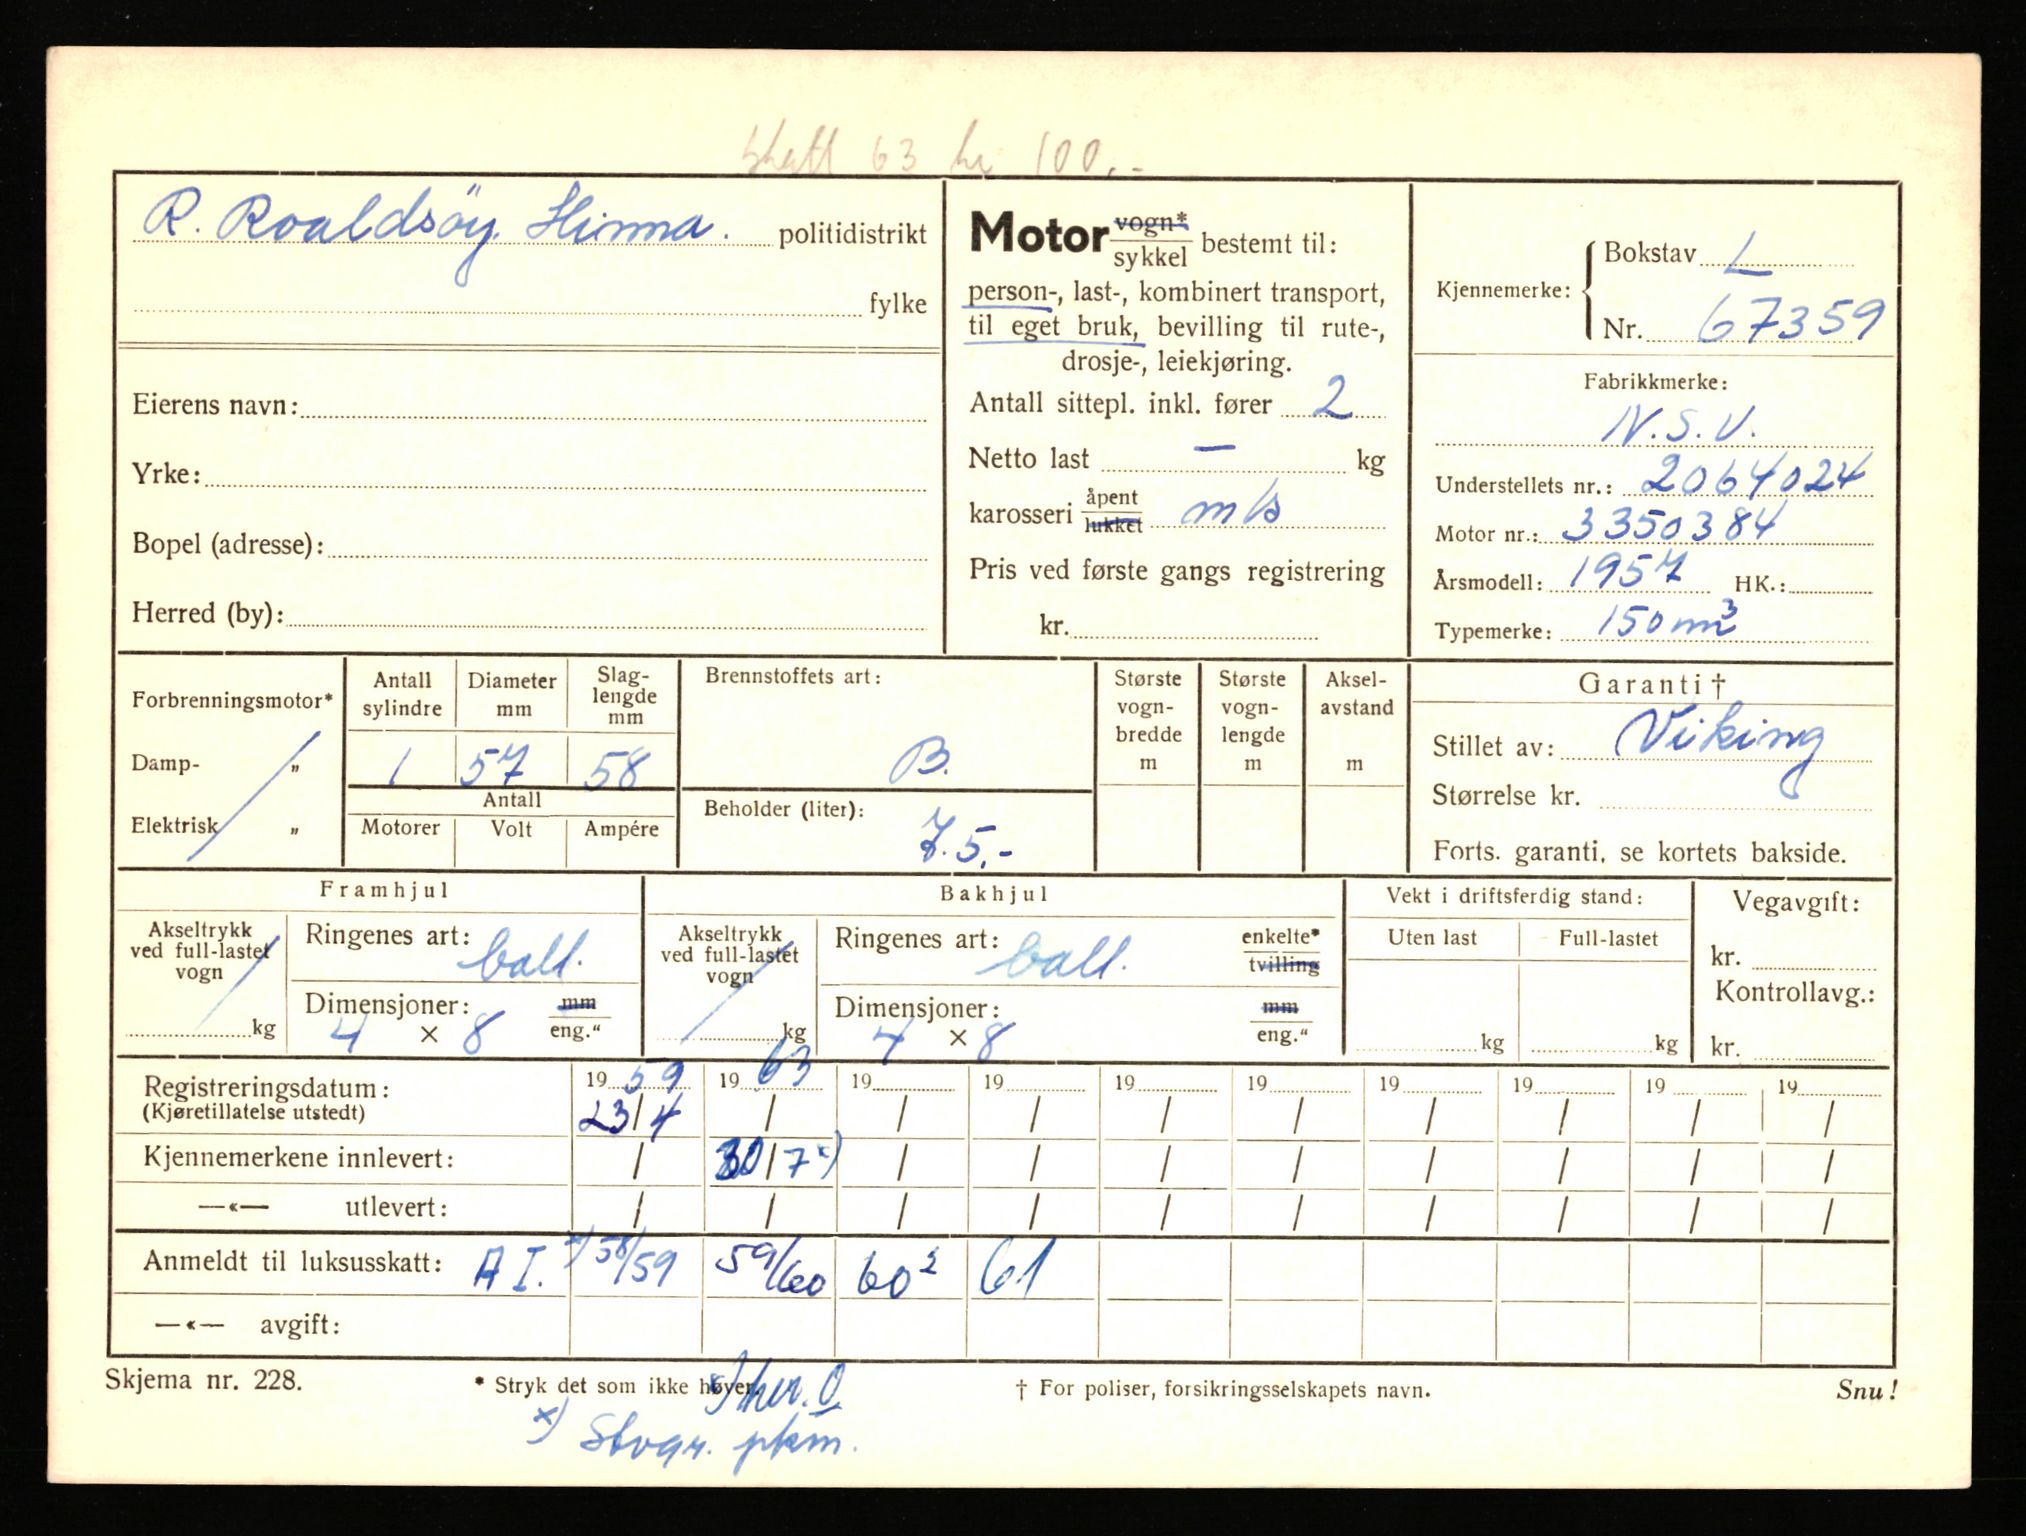 skatt 63 kr 100.-
R. Roaldsøy. Hinna. politidistrikt
fylke
Eierens navn:
Yrke:
Bopel (adresse):
Herred (by):
Motor vogn* / sykkel bestemt til:
person-, last-, kombinert transport,
til eget bruk, bevilling til rute-,
drosje-, leiekjøring.
Antall sittepl. inkl. fører 2
Netto last — kg
karosseri åpent / lukket m/s
Pris ved første gangs registrering
kr.
Kjennemerke: Bokstav L
Nr. 67359
Fabrikkmerke:
N.S.U.
Understellets nr.: 2064024
Motor nr.: 3350384
Årsmodell: 1957 HK.:
Typemerke: 150 mm³
Forbrenningsmotor*
Damp- „
Elektrisk „
Antall sylindre
Diameter mm
Slag- lengde mm
1 57 58
Antall
Motorer Volt Ampére
Brennstoffets art:
B.
Beholder (liter):
7.5.-
Største vogn- bredde m
Største vogn- lengde m
Aksel- avstand m
Garanti †
Stillet av: Viking
Størrelse kr.
Forts. garanti, se kortets bakside.
Framhjul
Akseltrykk
ved full-lastet
vogn
kg
Ringenes art: ball.
Dimensjoner: mm / eng."
4 × 8
Bakhjul
Akseltrykk
ved full-lastet
vogn
kg
Ringenes art: ball. enkelte* / tvilling
Dimensjoner: mm / eng."
4 × 8
Vekt i driftsferdig stand:
Uten last Full-lastet
kg kg
Vegavgift:
kr.
Kontrollavg.:
kr.
Registreringsdatum: 19 59 19 63 19 19 19 19 19 19 19 19
(Kjøretillatelse utstedt) 23/4 / / / / / / / / /
Kjennemerkene innlevert: / 30/7 x) / / / / / / / /
—«— utlevert: / / / / / / / / / /
Anmeldt til luksusskatt: A I. x) 58/59 59/60 60² 61
—«— avgift:
Skjema nr. 228. * Stryk det som ikke høver. † For poliser, forsikringsselskapets navn. Snu!
x)